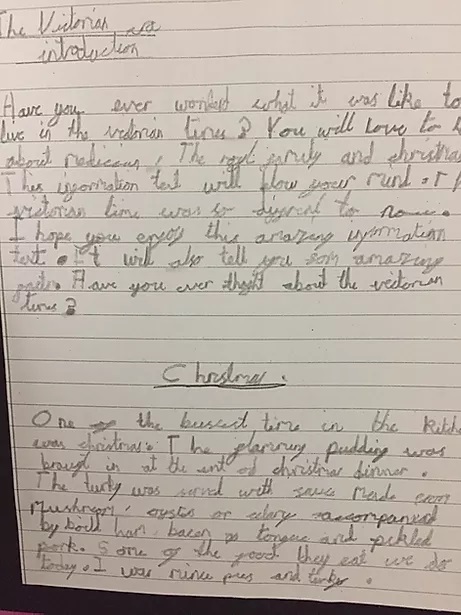 The Victorian era
introduction
Have you ever wonderd what it was like to
live in the victorian times? You will love to
about medicine, The royal family and christmas
This information text will blow your mind
victorian time was so difrent to now.
I hope you enjoy this amazing information
text. It will also tell you som amazing
Have you ever thoght about the victorian
times?
Christmas.
One of the buseist time in the kitch
was christmas. The flaming pudding was
braught in at the ent of christmas dinner.
The turky was served with sauce made from
mushroom, oysters or celery accompanied
by boild ham, bacon tongue and pickled
pork. Some of the food they eat we do
today. I was mince pies and turkey.